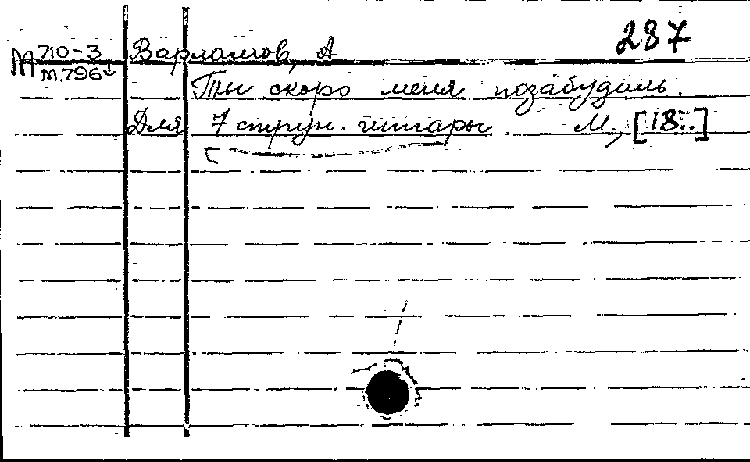 287
М 710-3 Варламов, А
м.796
Ты скоро меня позабудешь.
Для 7 струн. гитары. М., [18..]